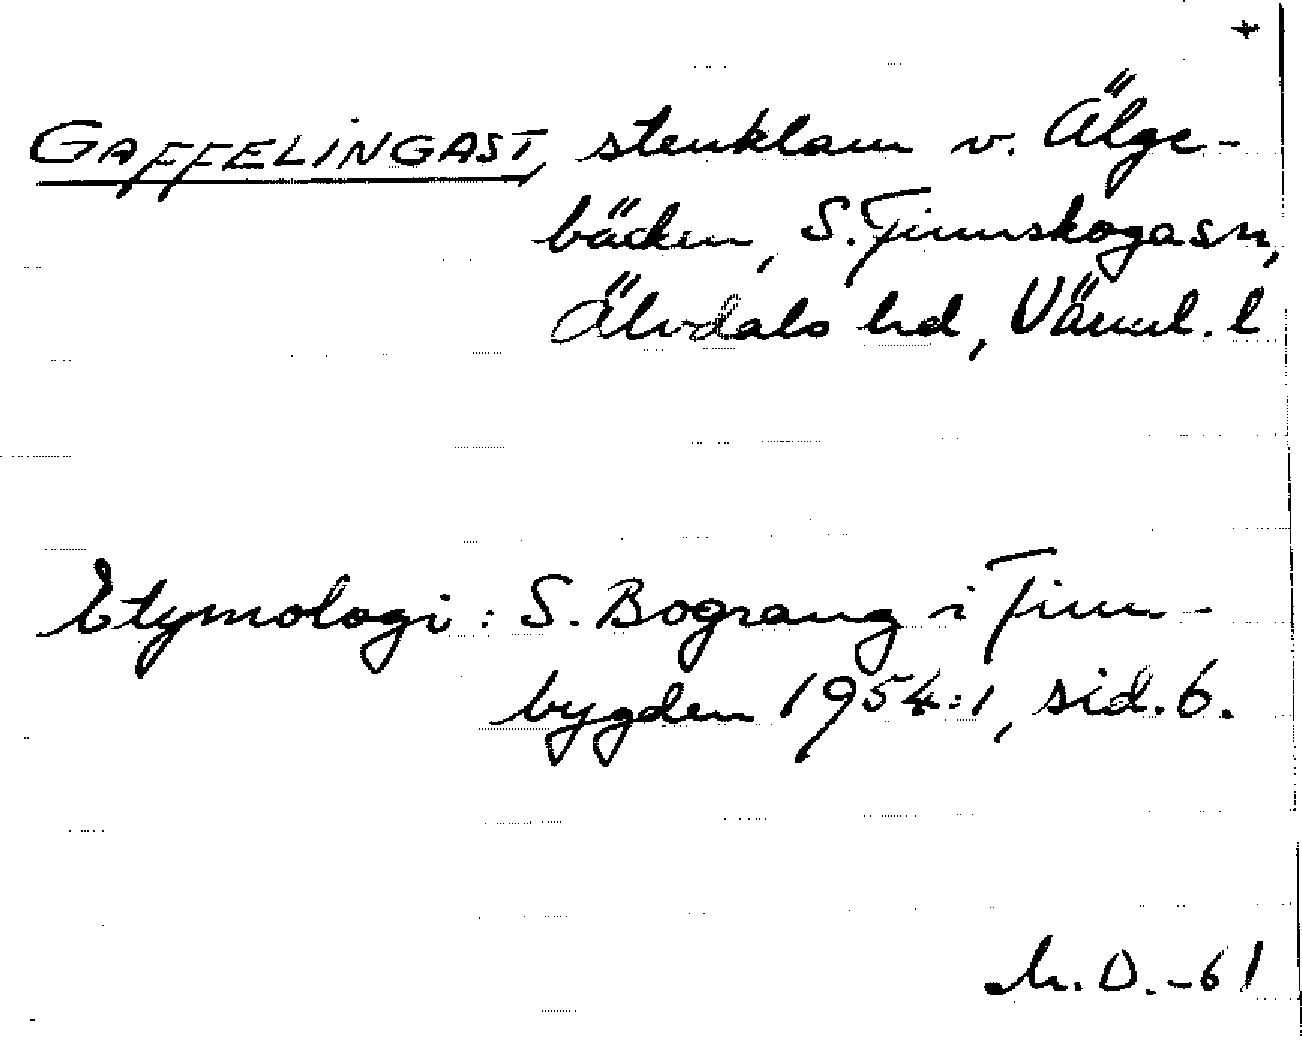 +
GAFFELINGAST, stenklam v. Älge-
bäcken, S. Finnskoga sn,
Älvdals hd, Värml. l
Etymologi: S. Bograng i Finn-
bygden 1954:1, sid. 6.
M. D. -61